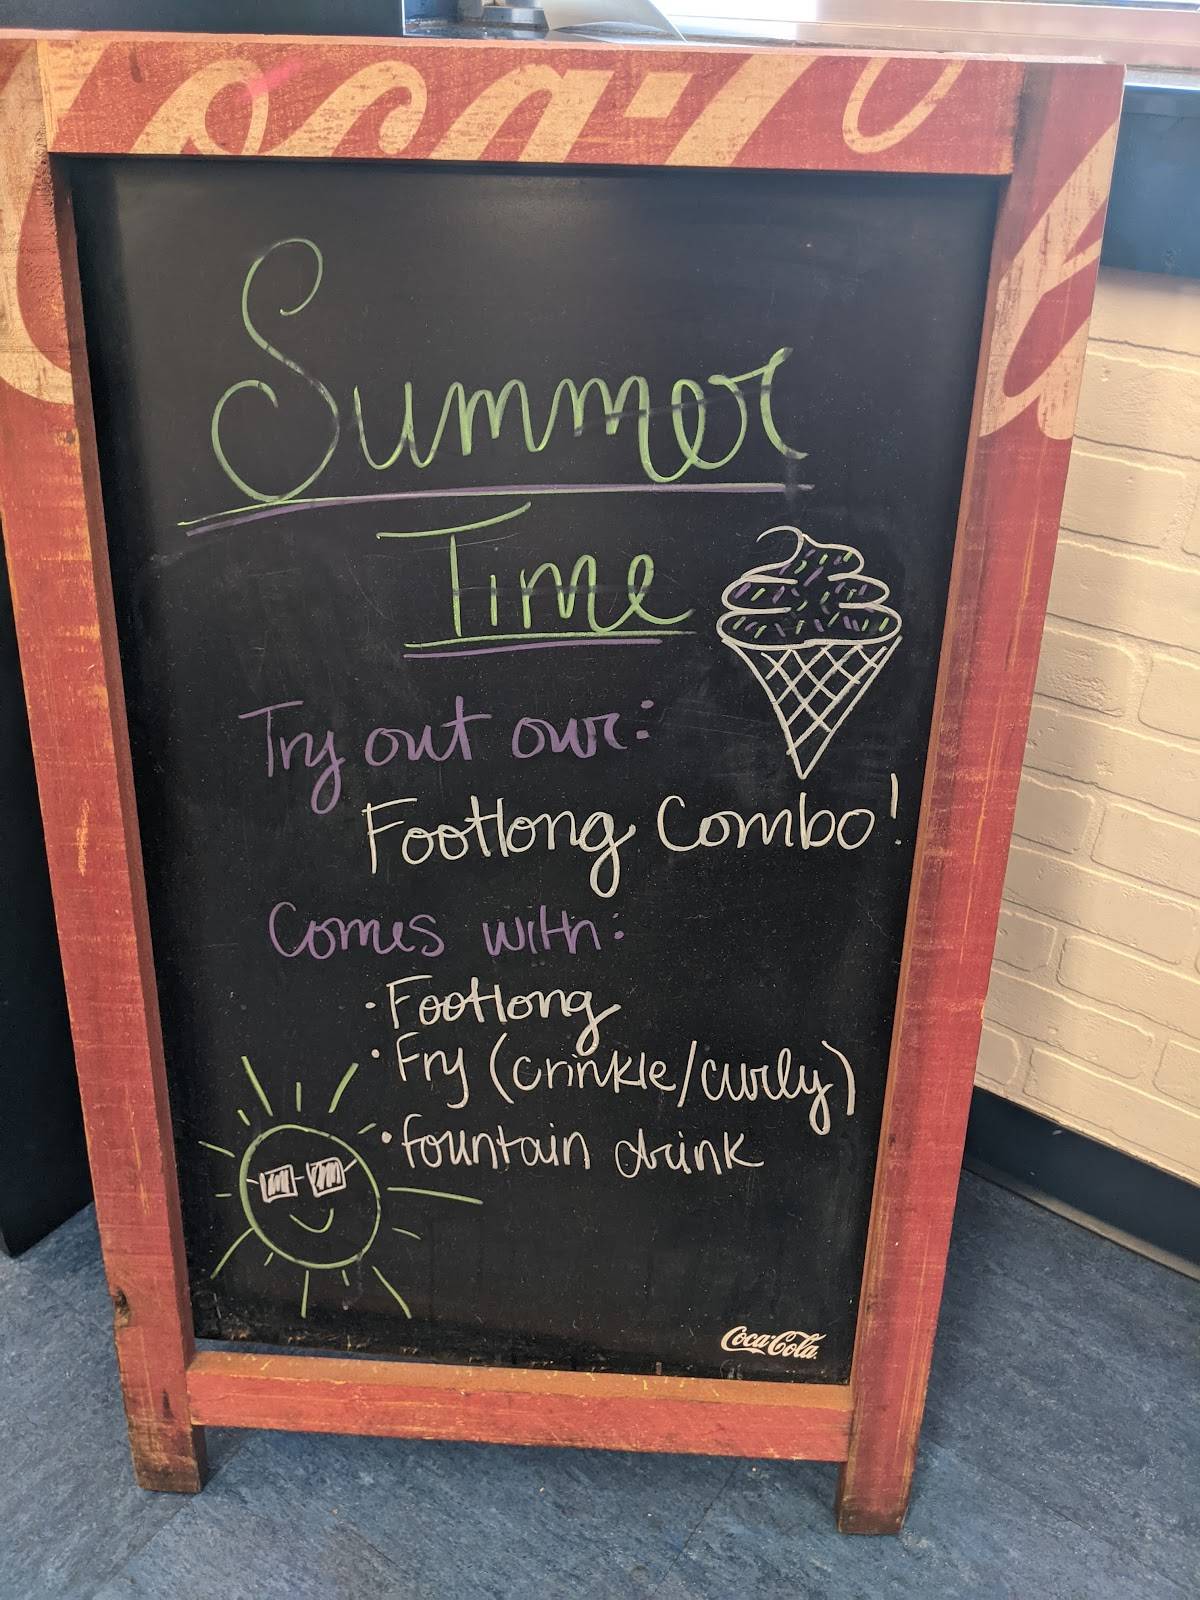 Coca-Cola
Summer
Time
Try out our:
Footlong Combo!
Comes with:
· Footlong
· Fry (crinkle/curly)
· fountain drink
Coca-Cola